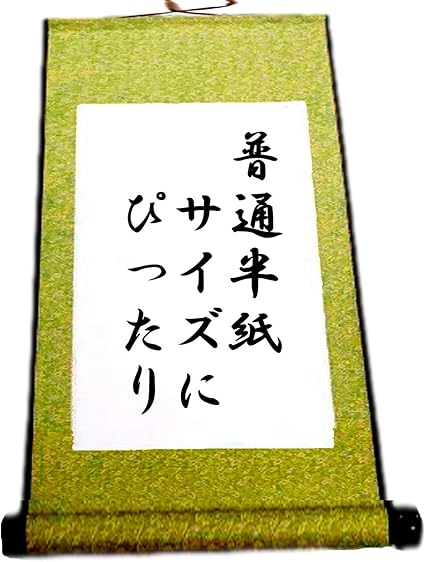 普通半紙
サイズに
ぴったり